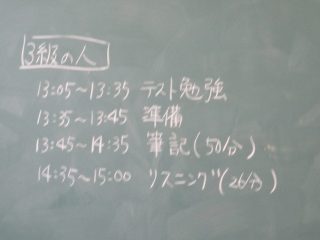 3級の人
13:05~13:35 テスト勉強
13:35~13:45 準備
13:45~14:35 筆記(50分)
14:35~15:00 リスニング(26分)